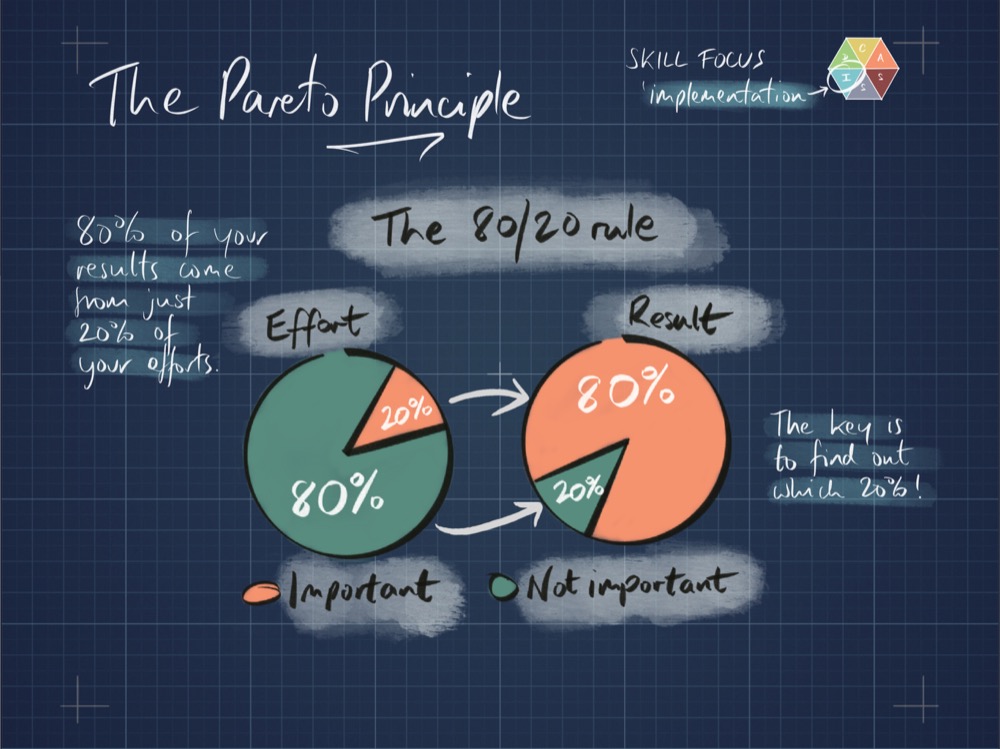 The Pareto Principle
SKILL FOCUS
implementation
C
A
S
S
I
The 80/20 rule
80% of your
results come
from just
20% of
your efforts.
Effort
Result
20%
80%
80%
20%
The key is
to find out
which 20%!
Important
Not important